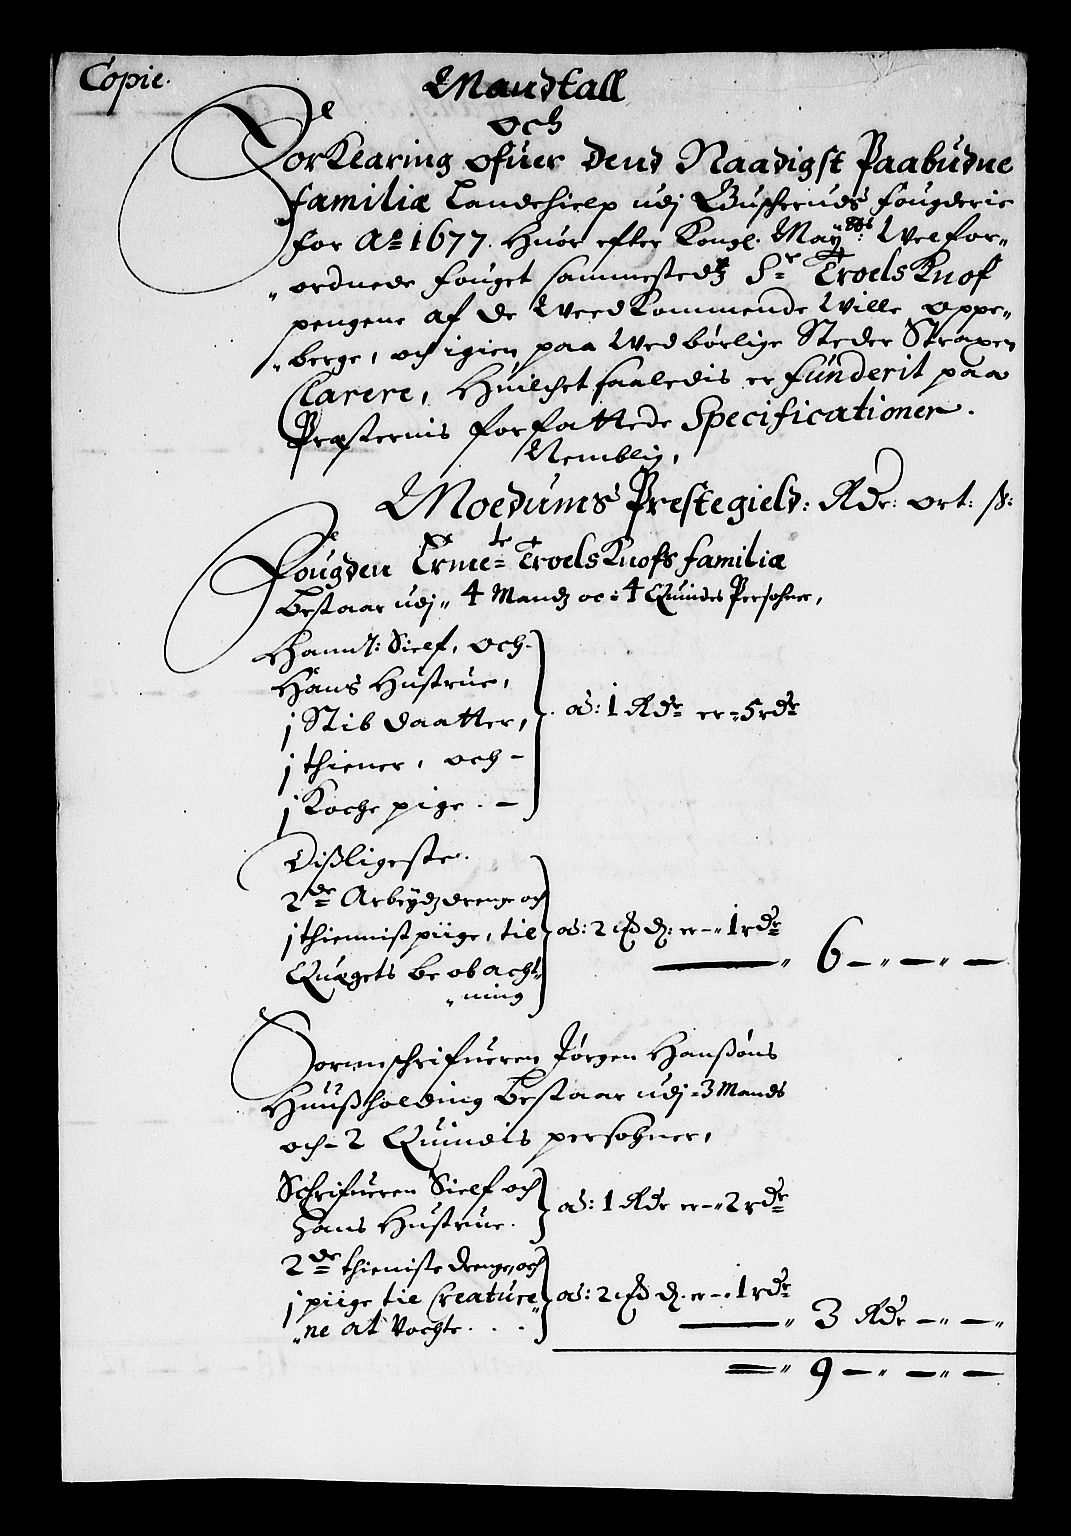 Copie.
Mandtall
och
Forklaring ofuer dend Naadigst Paabudne
familiæ Landehielp udj Buscheruds fougderie
for Aº 1677. Huor efter Kongl. Mayts: Velfor„
„ordnede fouget sammestedz Sr Troels Knof
pengene af de Vered Kommende Ville oppe„
„berge, och igien paa Vedbørlige Steder Straxen
Clarere, Huilchet saaledis er funderit paa
Præsternis forfattede Specificationer.
Nemblig,
Modums Prestegield: Rdr: ort: ß:
Fougden Erme= Troels Knofs familiæ
Bestaar udj„ 4 Mandz oc= 4 Quindes Persohner,
Hannl: Sielf, och-
Hans Hustrue,
j Stib daatter,
j thiener, och-
j Koche pige. -
ad: 1 Rdr er=5 rdr
Dißligeste.
2de Arbeydz drenge och
j thiennist piige, til
Quægets be obacht„
„ning
ad: 2 d: er-„1 rdr
„ 6-„-„-
Sorenschrifueren Jørgen Hanßøns
Huußholding Bestaar udj=3 Mands
och- 2 Quindis persohner,
Schrifueren Sielf och
hans Hustrue.
ad: 1 Rdr er-„2 rdr
2de thieniste drenge, och
j piige til Creature„
„ne at Vochte . . .
ad: 2 d. er-„1 rdr
„ 3 Rdr -„-„
„ 9-„-„-